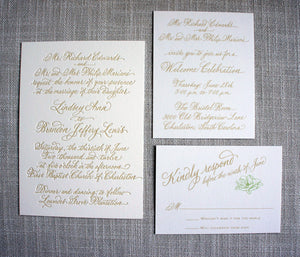 Mr. Richard Edwards
and
Mr. and Mrs. Philip Mariani
request the honour of your presence
at the marriage of their daughter
Lindsey Ann
to
Brendan Jeffery Lewis
Saturday, the thirtieth of June
two thousand and twelve
at five o'clock in the afternoon
First Baptist Church of Charleston
Dinner and dancing to follow
Lowndes Grove Plantation
Mr. Richard Edwards
and
Mr. and Mrs. Philip Mariani
invite you to join us for a
Welcome Celebration
Thursday, June 28th
The Bristol Room
Old Bridgeview Lane
Charleston, South Carolina
Kindly respond
before the of June
M